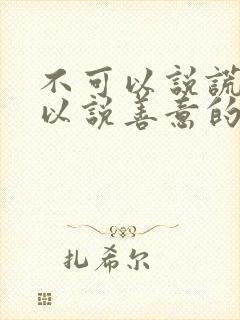 不可以説謊
以説善意的
扎希尔